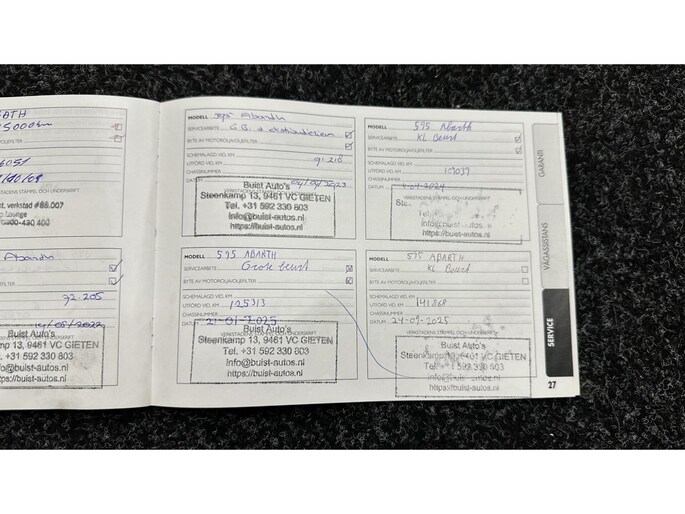 5000km
6051
STADENS STÄMPEL OCH UNDERSKRIFT
st. verkstad #88.007
p Lounge
0300-430 400
Abarth
LJEFILTER
72.205
14/06/2022
VERKSTADENS STÄMPEL OCH UNDERSKRIFT
Buist Auto's
mp 13, 9461 VC GIETEN
l. +31 592 330 803
info@buist-autos.nl
https://buist-autos.nl
MODELL Abarth
SERVICEARBETE G.B.
BYTE AV MOTOROLJA/OLJEFILTER
SCHEMALAGD VID, KM
UTFÖRD VID, KM 91 218
CHASSINUMMER
DATUM
VERKSTADENS STÄMPEL OCH UNDERSKRIFT
Buist Auto's
Steenkamp 13, 9461 VC GIETEN
Tel. +31 592 330 803
info@buist-autos.nl
https://buist-autos.nl
MODELL 595 Abarth
SERVICEARBETE KL Beurt
BYTE AV MOTOROLJA/OLJEFILTER
SCHEMALAGD VID, KM
UTFÖRD VID, KM
CHASSINUMMER
DATUM
VERKSTADENS STÄMPEL OCH UNDERSKRIFT
MODELL 595 ABARTH
SERVICEARBETE Grote beurt
BYTE AV MOTOROLJA/OLJEFILTER
SCHEMALAGD VID, KM
UTFÖRD VID, KM 125313
CHASSINUMMER
DATUM 21-01-2025
VERKSTADENS STÄMPEL OCH UNDERSKRIFT
Buist Auto's
Steenkamp 13, 9461 VC GIETEN
Tel. +31 592 330 803
info@buist-autos.nl
https://buist-autos.nl
MODELL 595 ABARTH
SERVICEARBETE KL Beurt
BYTE AV MOTOROLJA/OLJEFILTER
SCHEMALAGD VID, KM
UTFÖRD VID, KM 141868
CHASSINUMMER
DATUM 24-09-2025
VERKSTADENS STÄMPEL OCH UNDERSKRIFT
Buist Auto's
Steenkamp 13, 9461 VC GIETEN
Tel. +31 592 330 803
info@buist-autos.nl
https://buist-autos.nl
GARANTI
VÄGASSISTANS
SERVICE
27